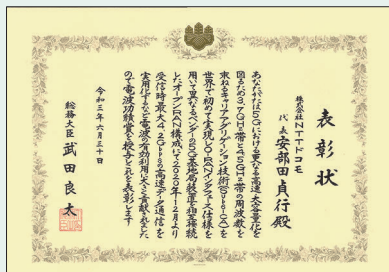 表彰状
株式会社NTTドコモ
代表 安部田貞行殿
あなたがたは5Gにおける更なる高速・大容量化を
図るため3.7GHz帯と4.5GHz帯の周波数を
束ねるキャリアアグリゲーション技術(Sub6-CA)を
世界で初めて実現しO-RANインタフェース仕様を
用いて異なるベンダーの5G基地局装置を相互接続
したオープンRAN構成にて2020年12月より
受信時最大4.2Gbpsの高速データ通信を
実用化するなど電波の有効利用に大きく貢献されました
ので電波功績賞を授与しこれを表彰します
令和三年六月三十日
総務大臣 武田良太